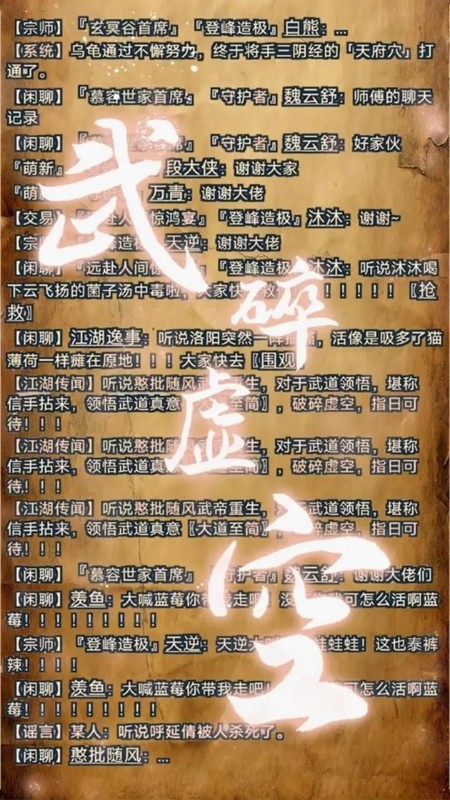 【宗师】『玄冥谷首席』『登峰造极』白熊：…
【系统】乌龟通过不懈努力，终于将手三阴经的「天府穴」打
通了。
【闲聊】『慕容世家首席』『守护者』魏云舒：师傅的聊天
记录
【闲聊】『慕 『守护者』魏云舒：好家伙
『萌新』 段大侠：谢谢大家
『萌 万青：谢谢大佬
【交易 赴人 惊鸿宴』『登峰造极』沐沐：谢谢~
【宗 峰造极』天逆：谢谢大佬
【闲聊】『远赴人间惊 『登峰造极』沐沐：听说沐沐喝
下云飞扬的菌子汤中毒啦，大家快 救 ！！！！！〖抢
救〗
【闲聊】江湖逸事：听说洛阳突然一阵 ，活像是吸多了猫
薄荷一样瘫在原地！！！大家快去〖围观
【江湖传闻】听说憨批随风武 重生，对于武道领悟，堪称
信手拈来，领悟武道真意 至简〗，破碎虚空，指日可
待！！！
【江湖传闻】听说憨批随风 重生，对于武道领悟，堪称
信手拈来，领悟武道真 至简〗，破碎虚空，指日可
待！！！
【江湖传闻】听说憨批随风武帝重生，对于武道领悟，堪称
信手拈来，领悟武道真意〖大道至简〗，破碎虚空，指日可
待！！！
【闲聊】『慕容世家首席』 守护者』魏云舒：谢谢大佬们
【闲聊】羡鱼：大喊蓝莓你带我走吧！没 可怎么活啊蓝
莓！！！！！！！！！
【宗师】『登峰造极』天逆：天逆大 蛙蛙！这也泰裤
辣！！！！
【闲聊】羡鱼：大喊蓝莓你带我走吧！ 可怎么活啊蓝
莓！！！！！！！！！
【谣言】某人：听说呼延倩被人杀死了。
【闲聊】憨批随风：…
武
碎
虚
空